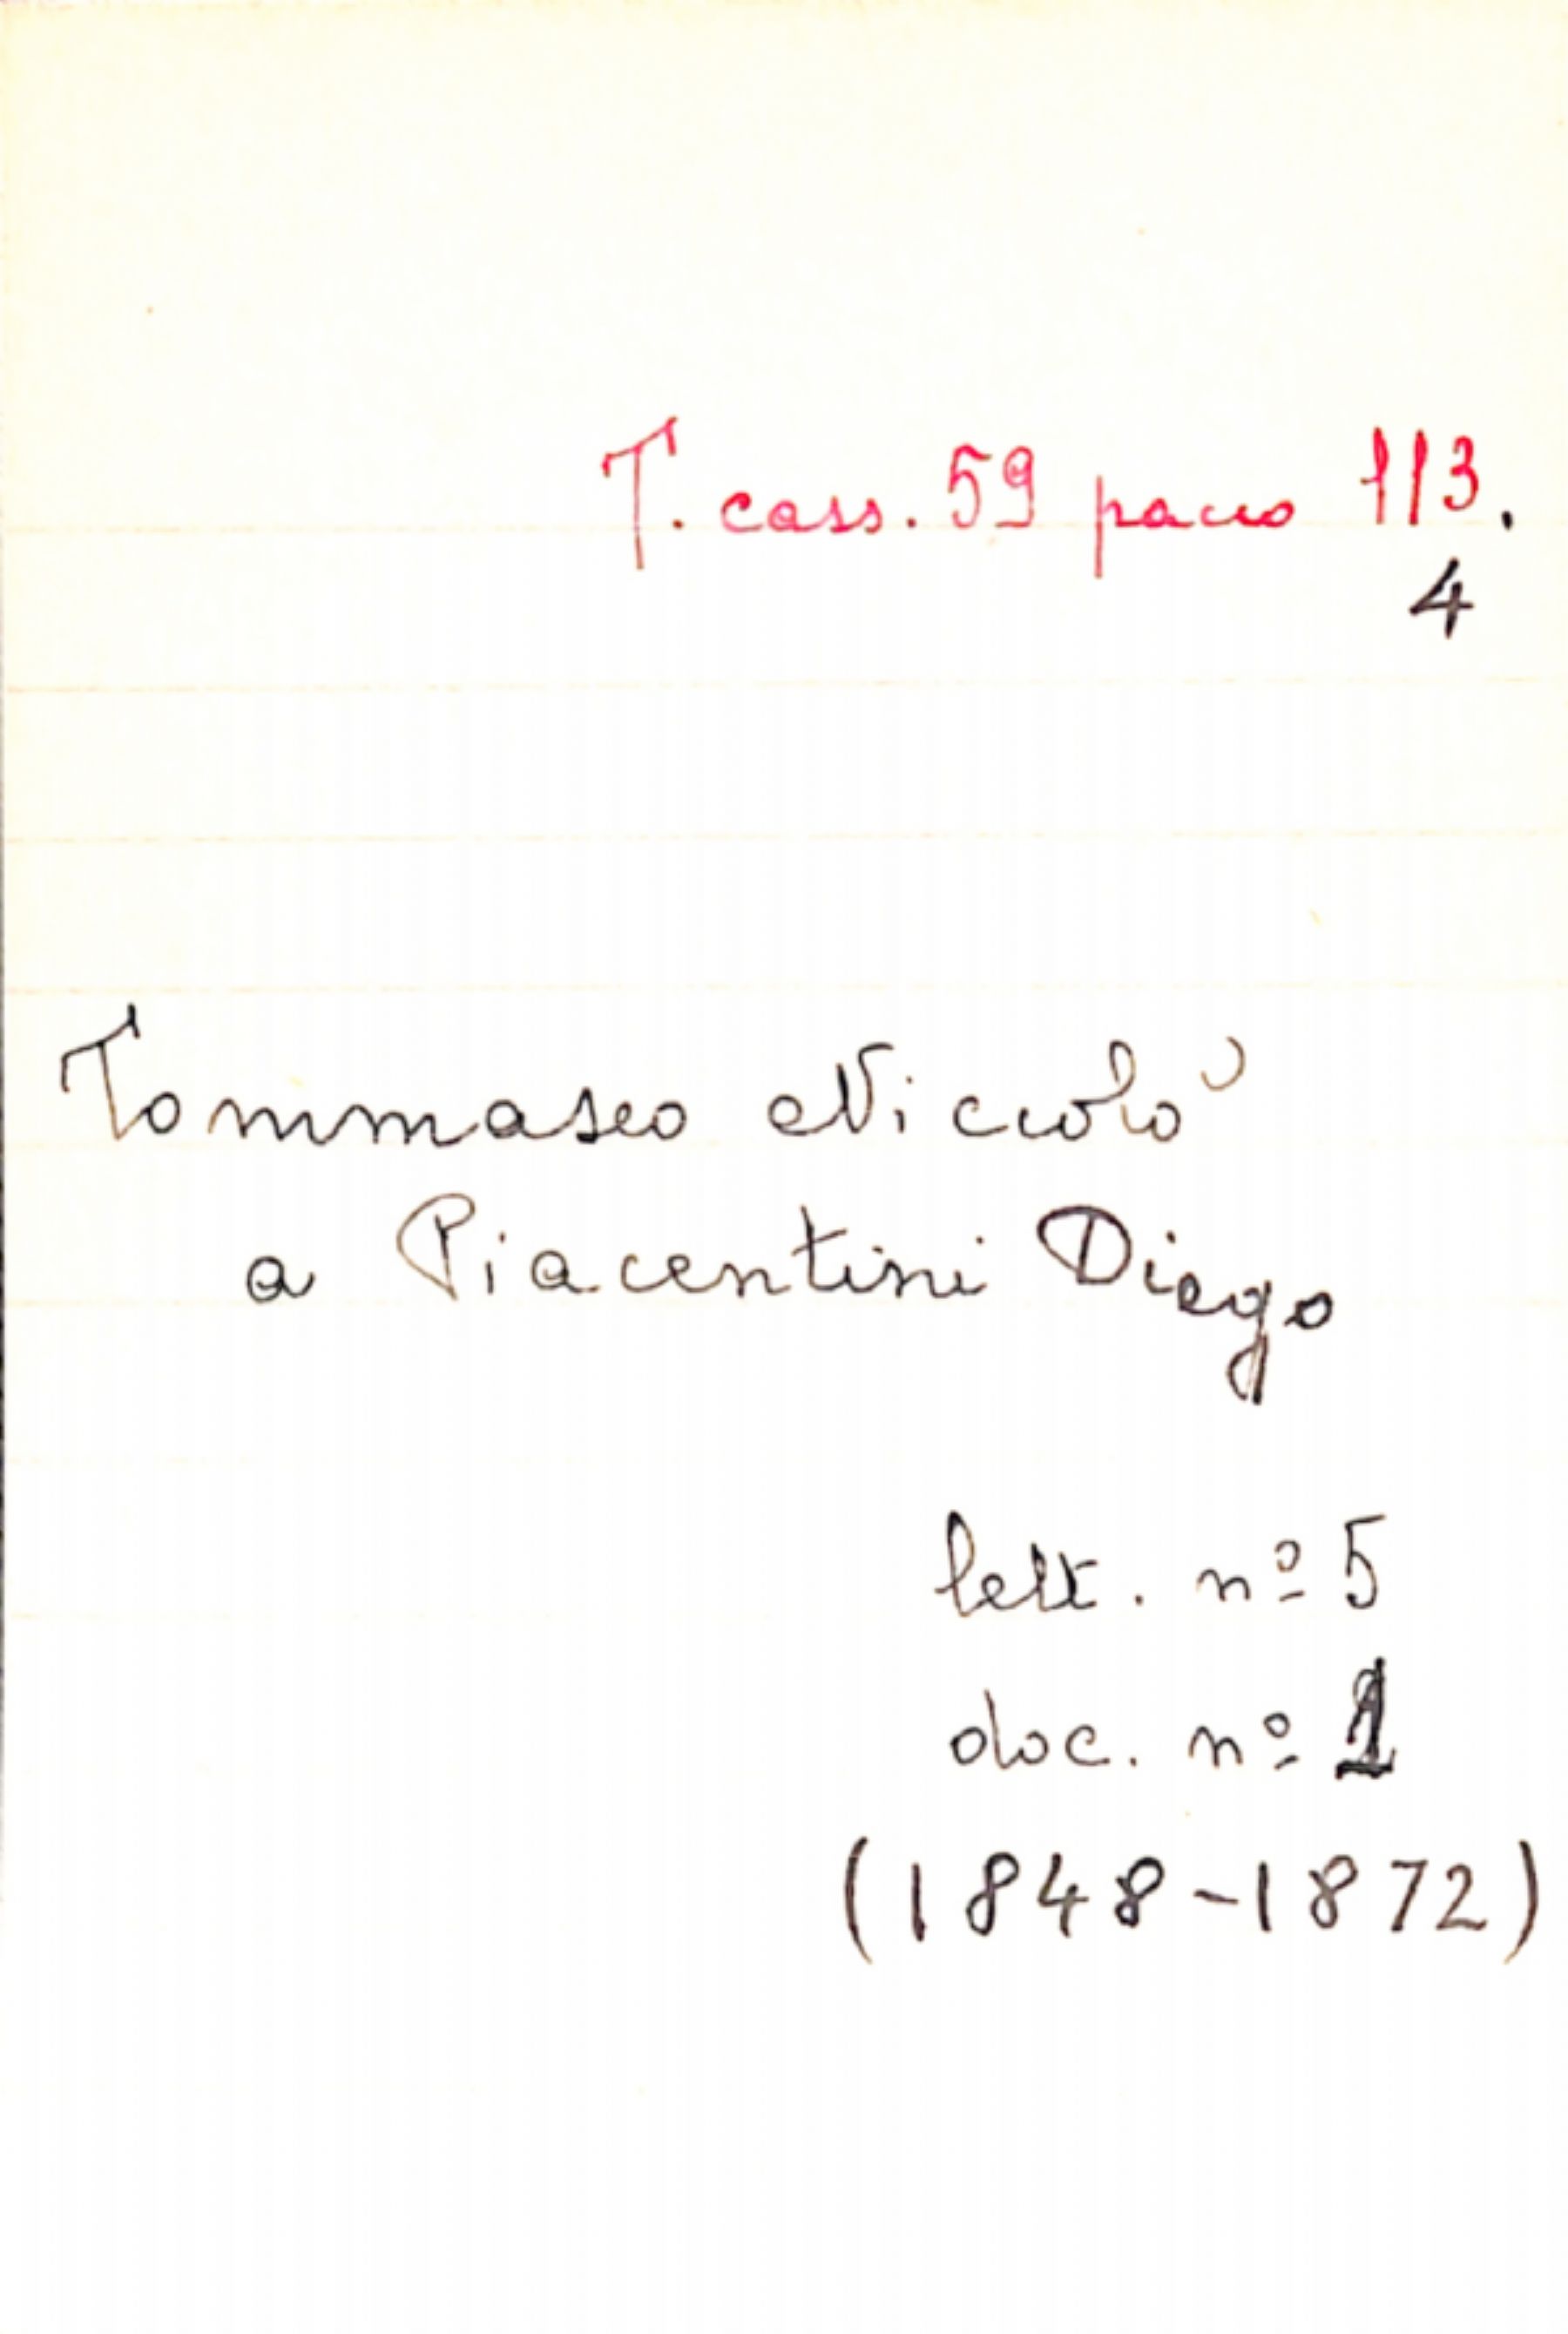 T. cass. 59 pacco 113.
4
Tommaseo Niccolò
a Piacentini Diego
lett. nº 5
doc. nº 1
(1848-1872)